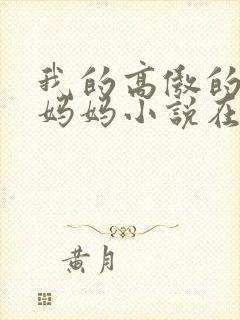 我的高傲的
妈妈小說在
黄月